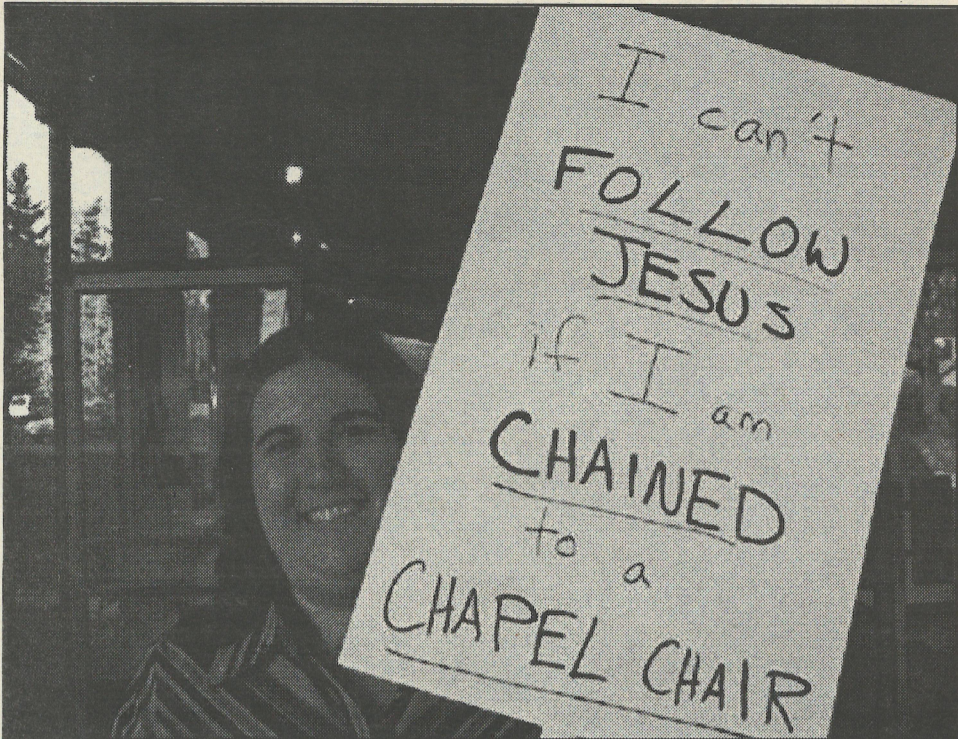 I can't
FOLLOW
JESUS
if I am
CHAINED
to a
CHAPEL CHAIR